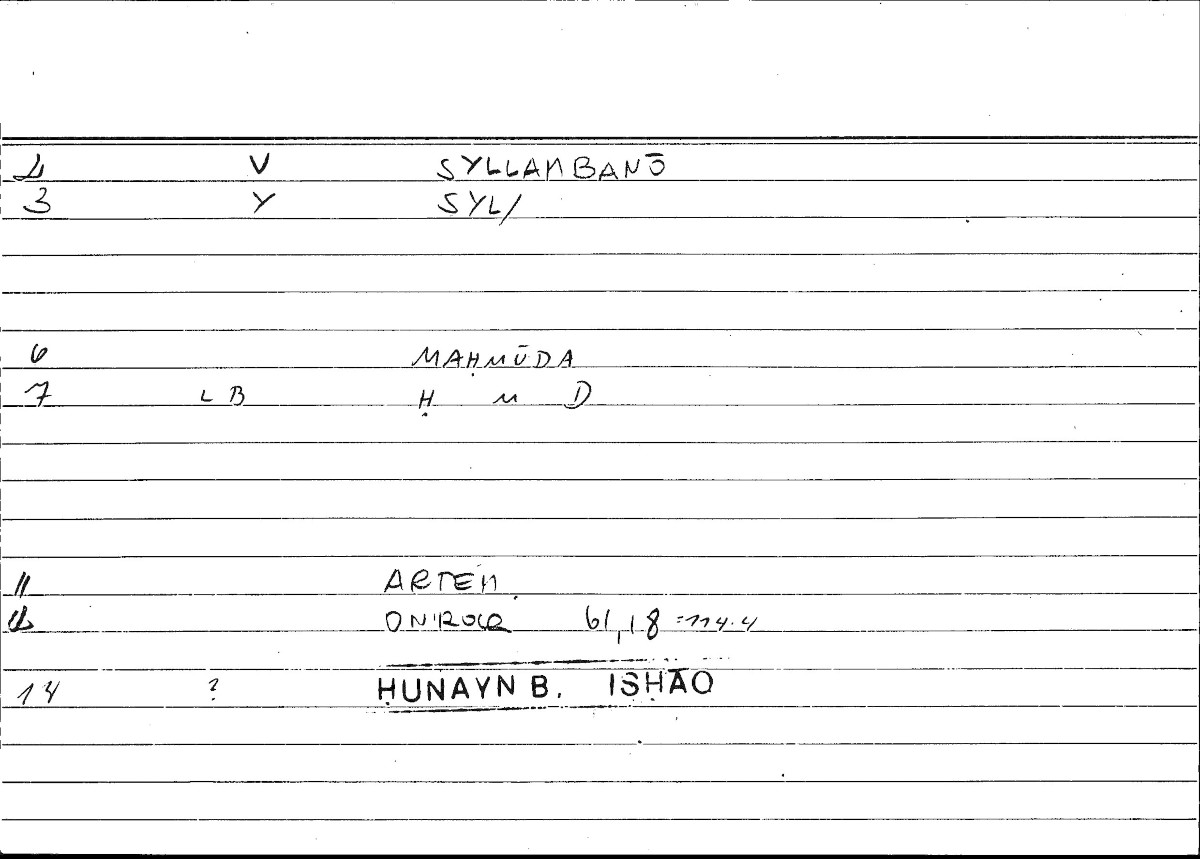 2 V SYLLAMBANŌ
3 Y SYL/
6 MAḤMŪDA
7 LB Ḥ M D
11 ARTEM.
12 ONIROCR 61,18 =114.4
14 ? ḤUNAYN B. ISḤĀQ